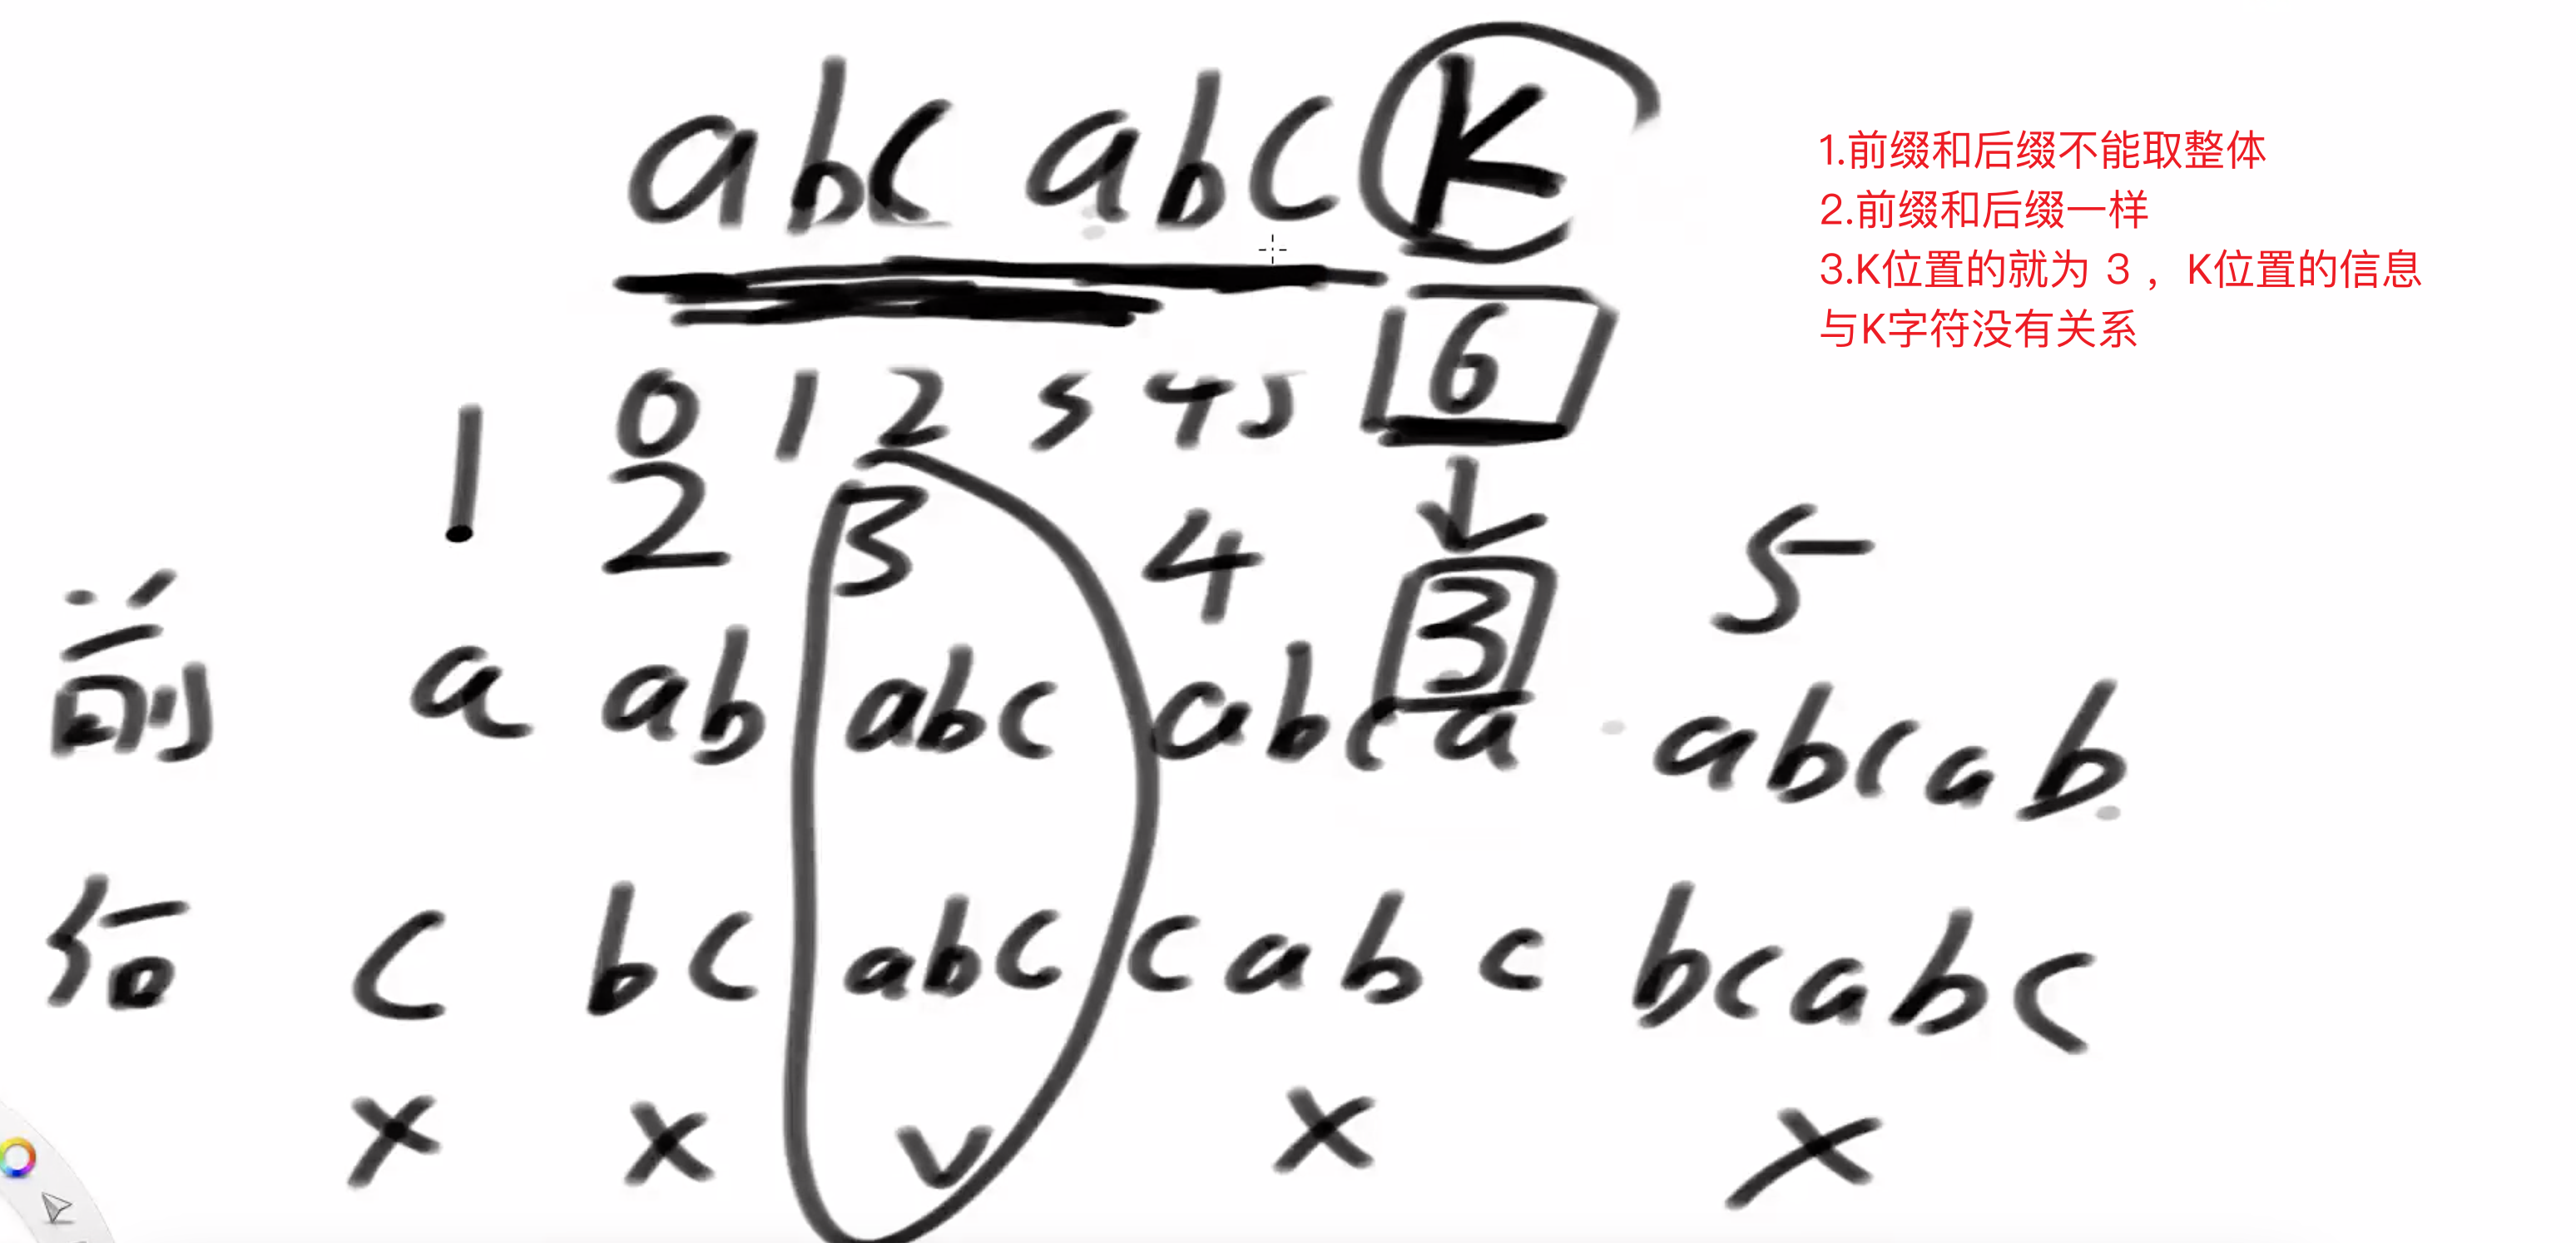 abc abc K
0 1 2 3 4 5 6
1 2 3 4 5
3
前 a ab abc abca abcab
后 c bc abc cabc bcabc
x x v x x
1.前缀和后缀不能取整体
2.前缀和后缀一样
3.K位置的就为 3 ，K位置的信息
与K字符没有关系